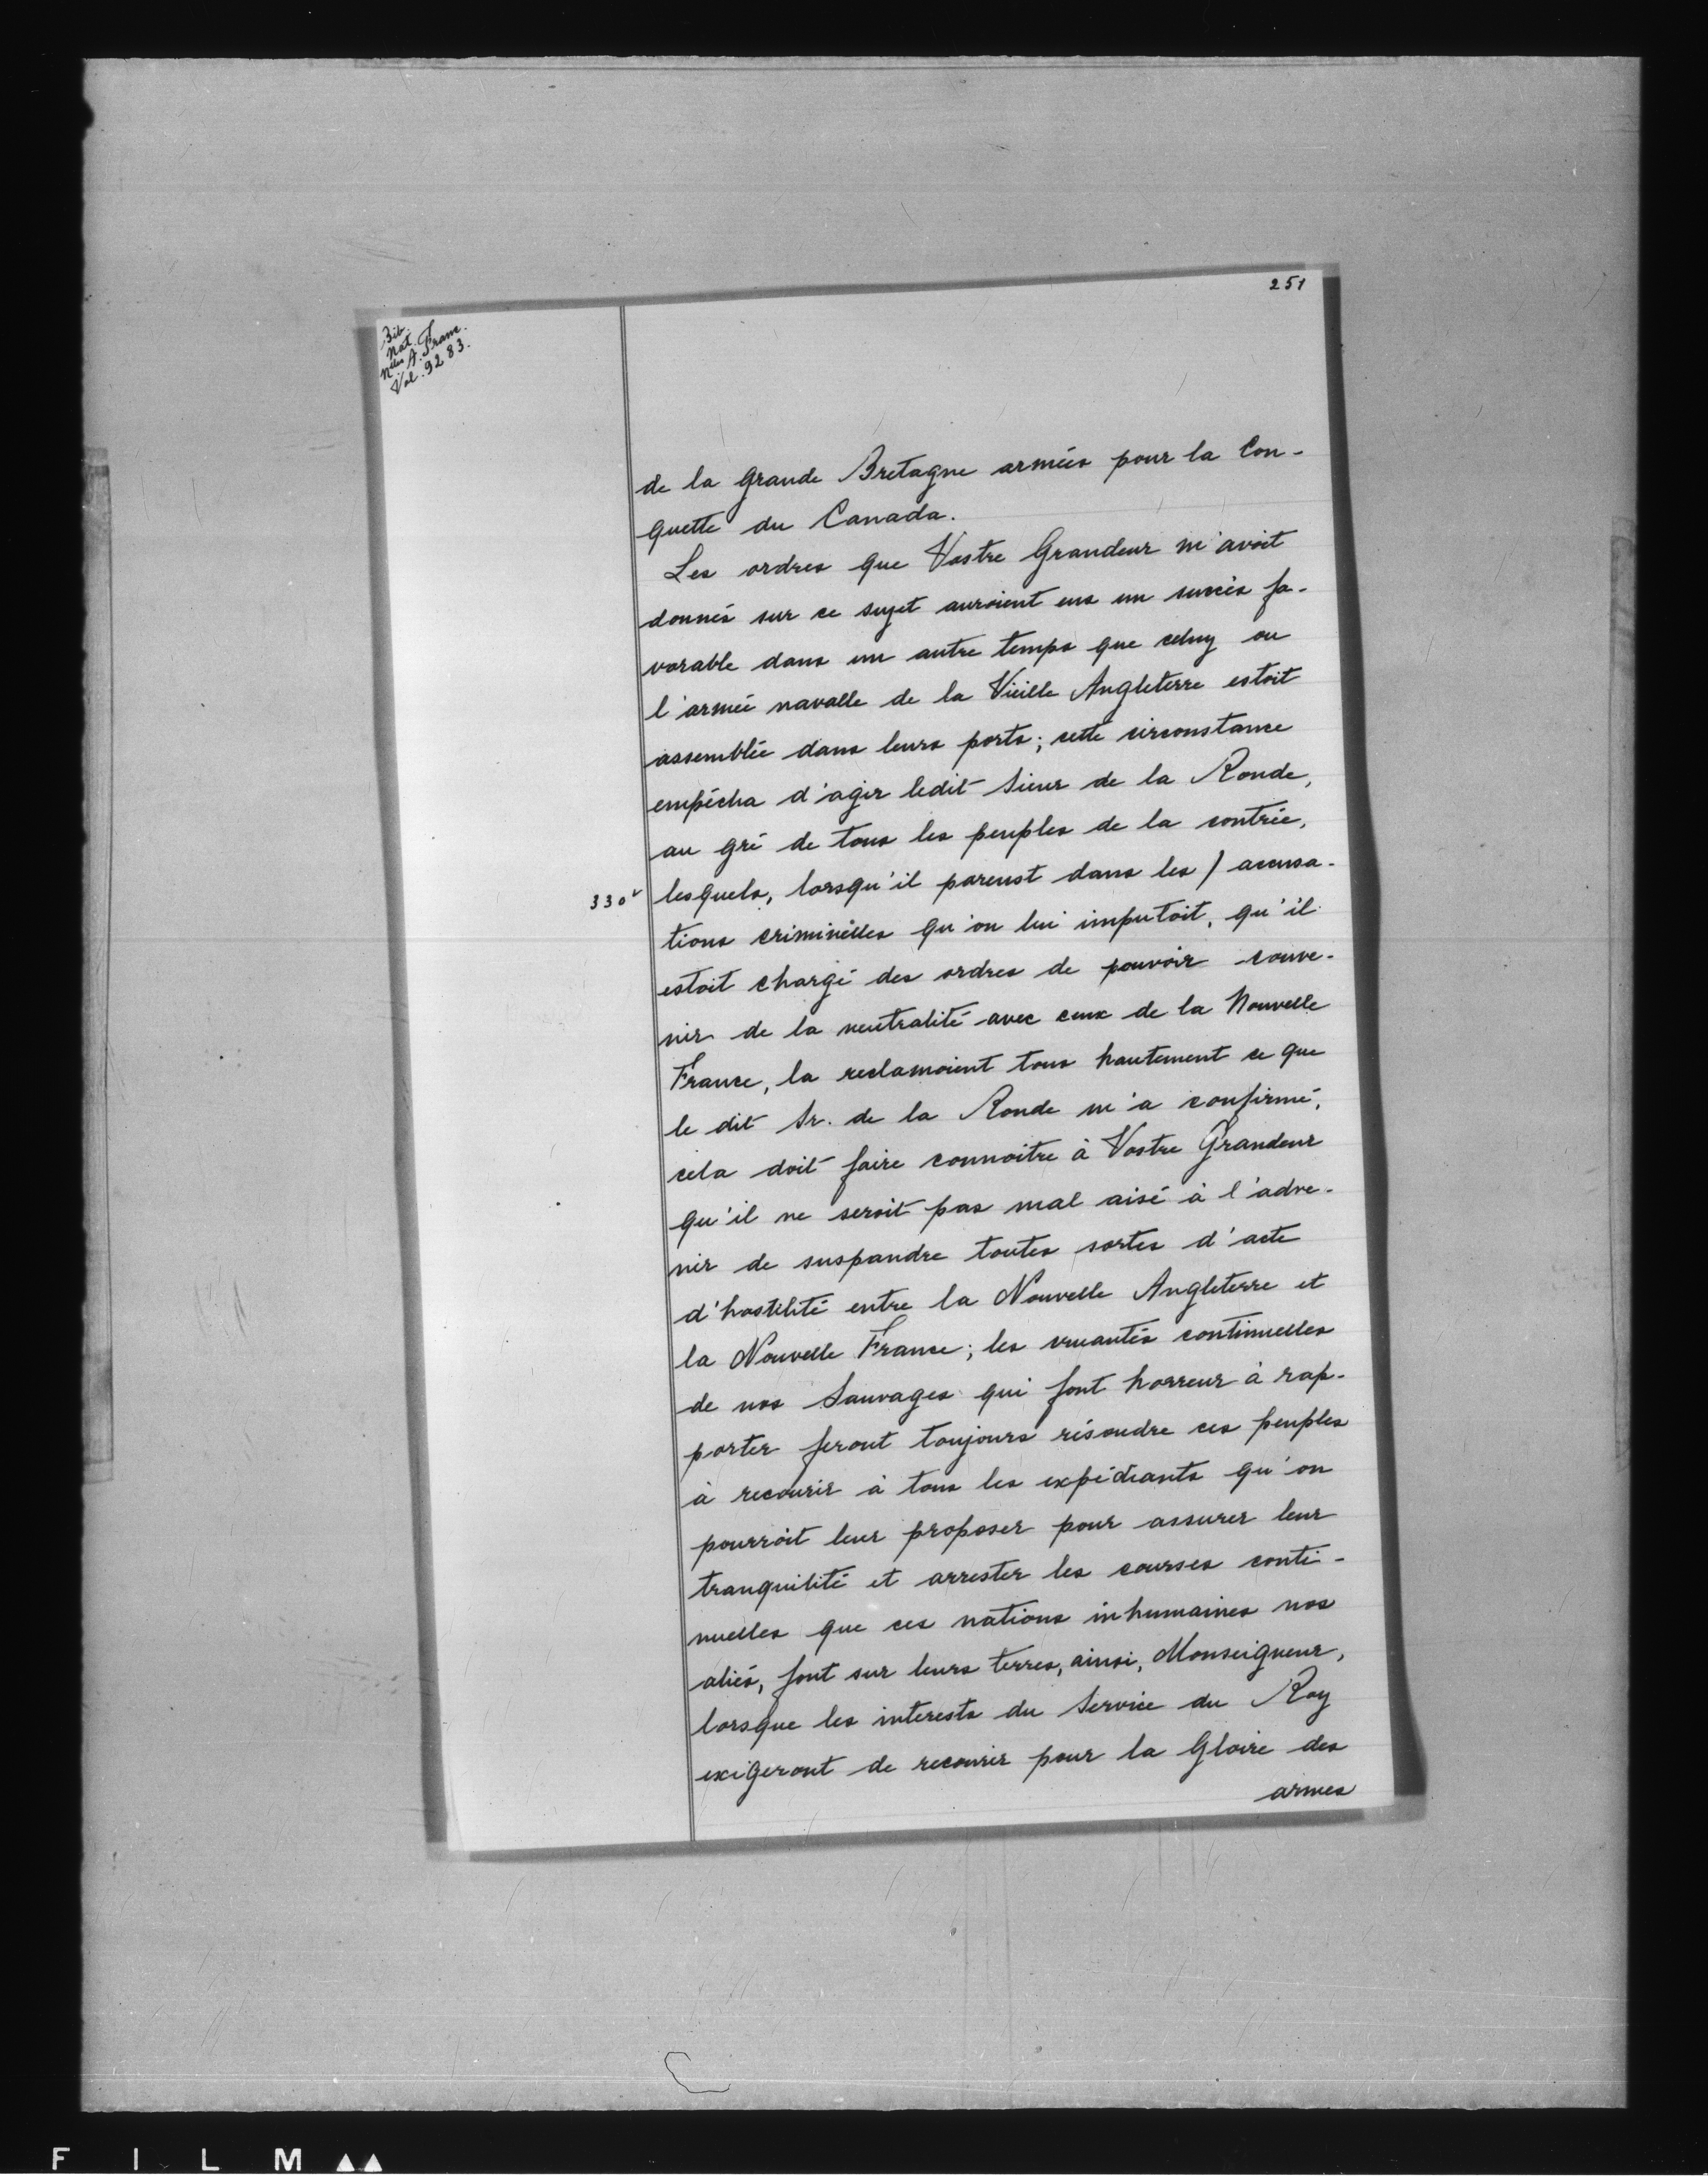 251
Bib.
Nat.
Nelles A. Franc.
Vol. 9283.
de la Grande Bretagne armées pour la Con-
quette du Canada.
Les ordres que Vostre Grandeur m'avoit
donnés sur ce sujet auroient eus un succès fa-
vorable dans un autre temps que celuy ou
l'armée navalle de la Vieille Angleterre estoit
assemblée dans leurs ports; cette circonstance
empêcha d'agir ledit Sieur de la Ronde,
au gré de tous les peuples de la contrée,
330v lesquels, lorsqu'il pareust dans les / accusa-
tions criminelles qu'on lui imputoit, qu'il
estoit chargé des ordres de pouvoir conve-
nir de la neutralité avec ceux de la Nouvelle
France, la reclamoient tous hautement ce que
le dit Sr. de la Ronde m'a confirmé,
cela doit faire connoitre à Vostre Grandeur
qu'il ne seroit pas mal aisé à l'adve-
nir de suspandre toutes sortes d'acte
d'hostilité entre la Nouvelle Angleterre et
la Nouvelle France; les cruautés continuelles
de nos Sauvages qui font horreur à rap-
porter feront toujours résoudre ces peuples
à recourir à tous les expédiants qu'on
pourroit leur proposer pour assurer leur
tranquilité et arrester les courses conti-
nuelles que ces nations inhumaines nos
aliés, font sur leurs terres, ainsi, Monseigneur,
lorsque les interests du Service du Roy
exigeront de recourir pour la Gloire des
armes
FILM